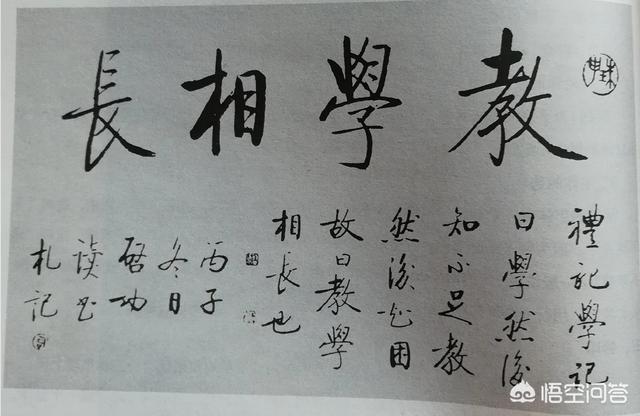 教學相長
禮記學記
曰學然後
知不足教
然後知困
故曰教學
相長也
丙子
冬日
启功
读书
札記
悟空问答